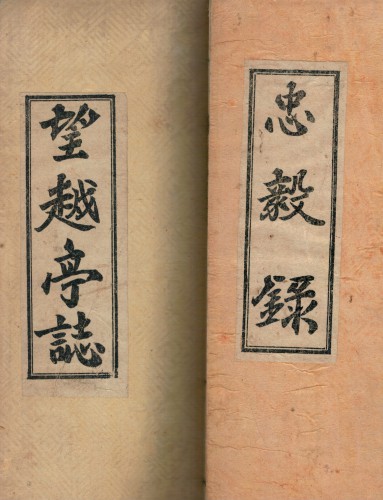 忠毅録
望越亭誌